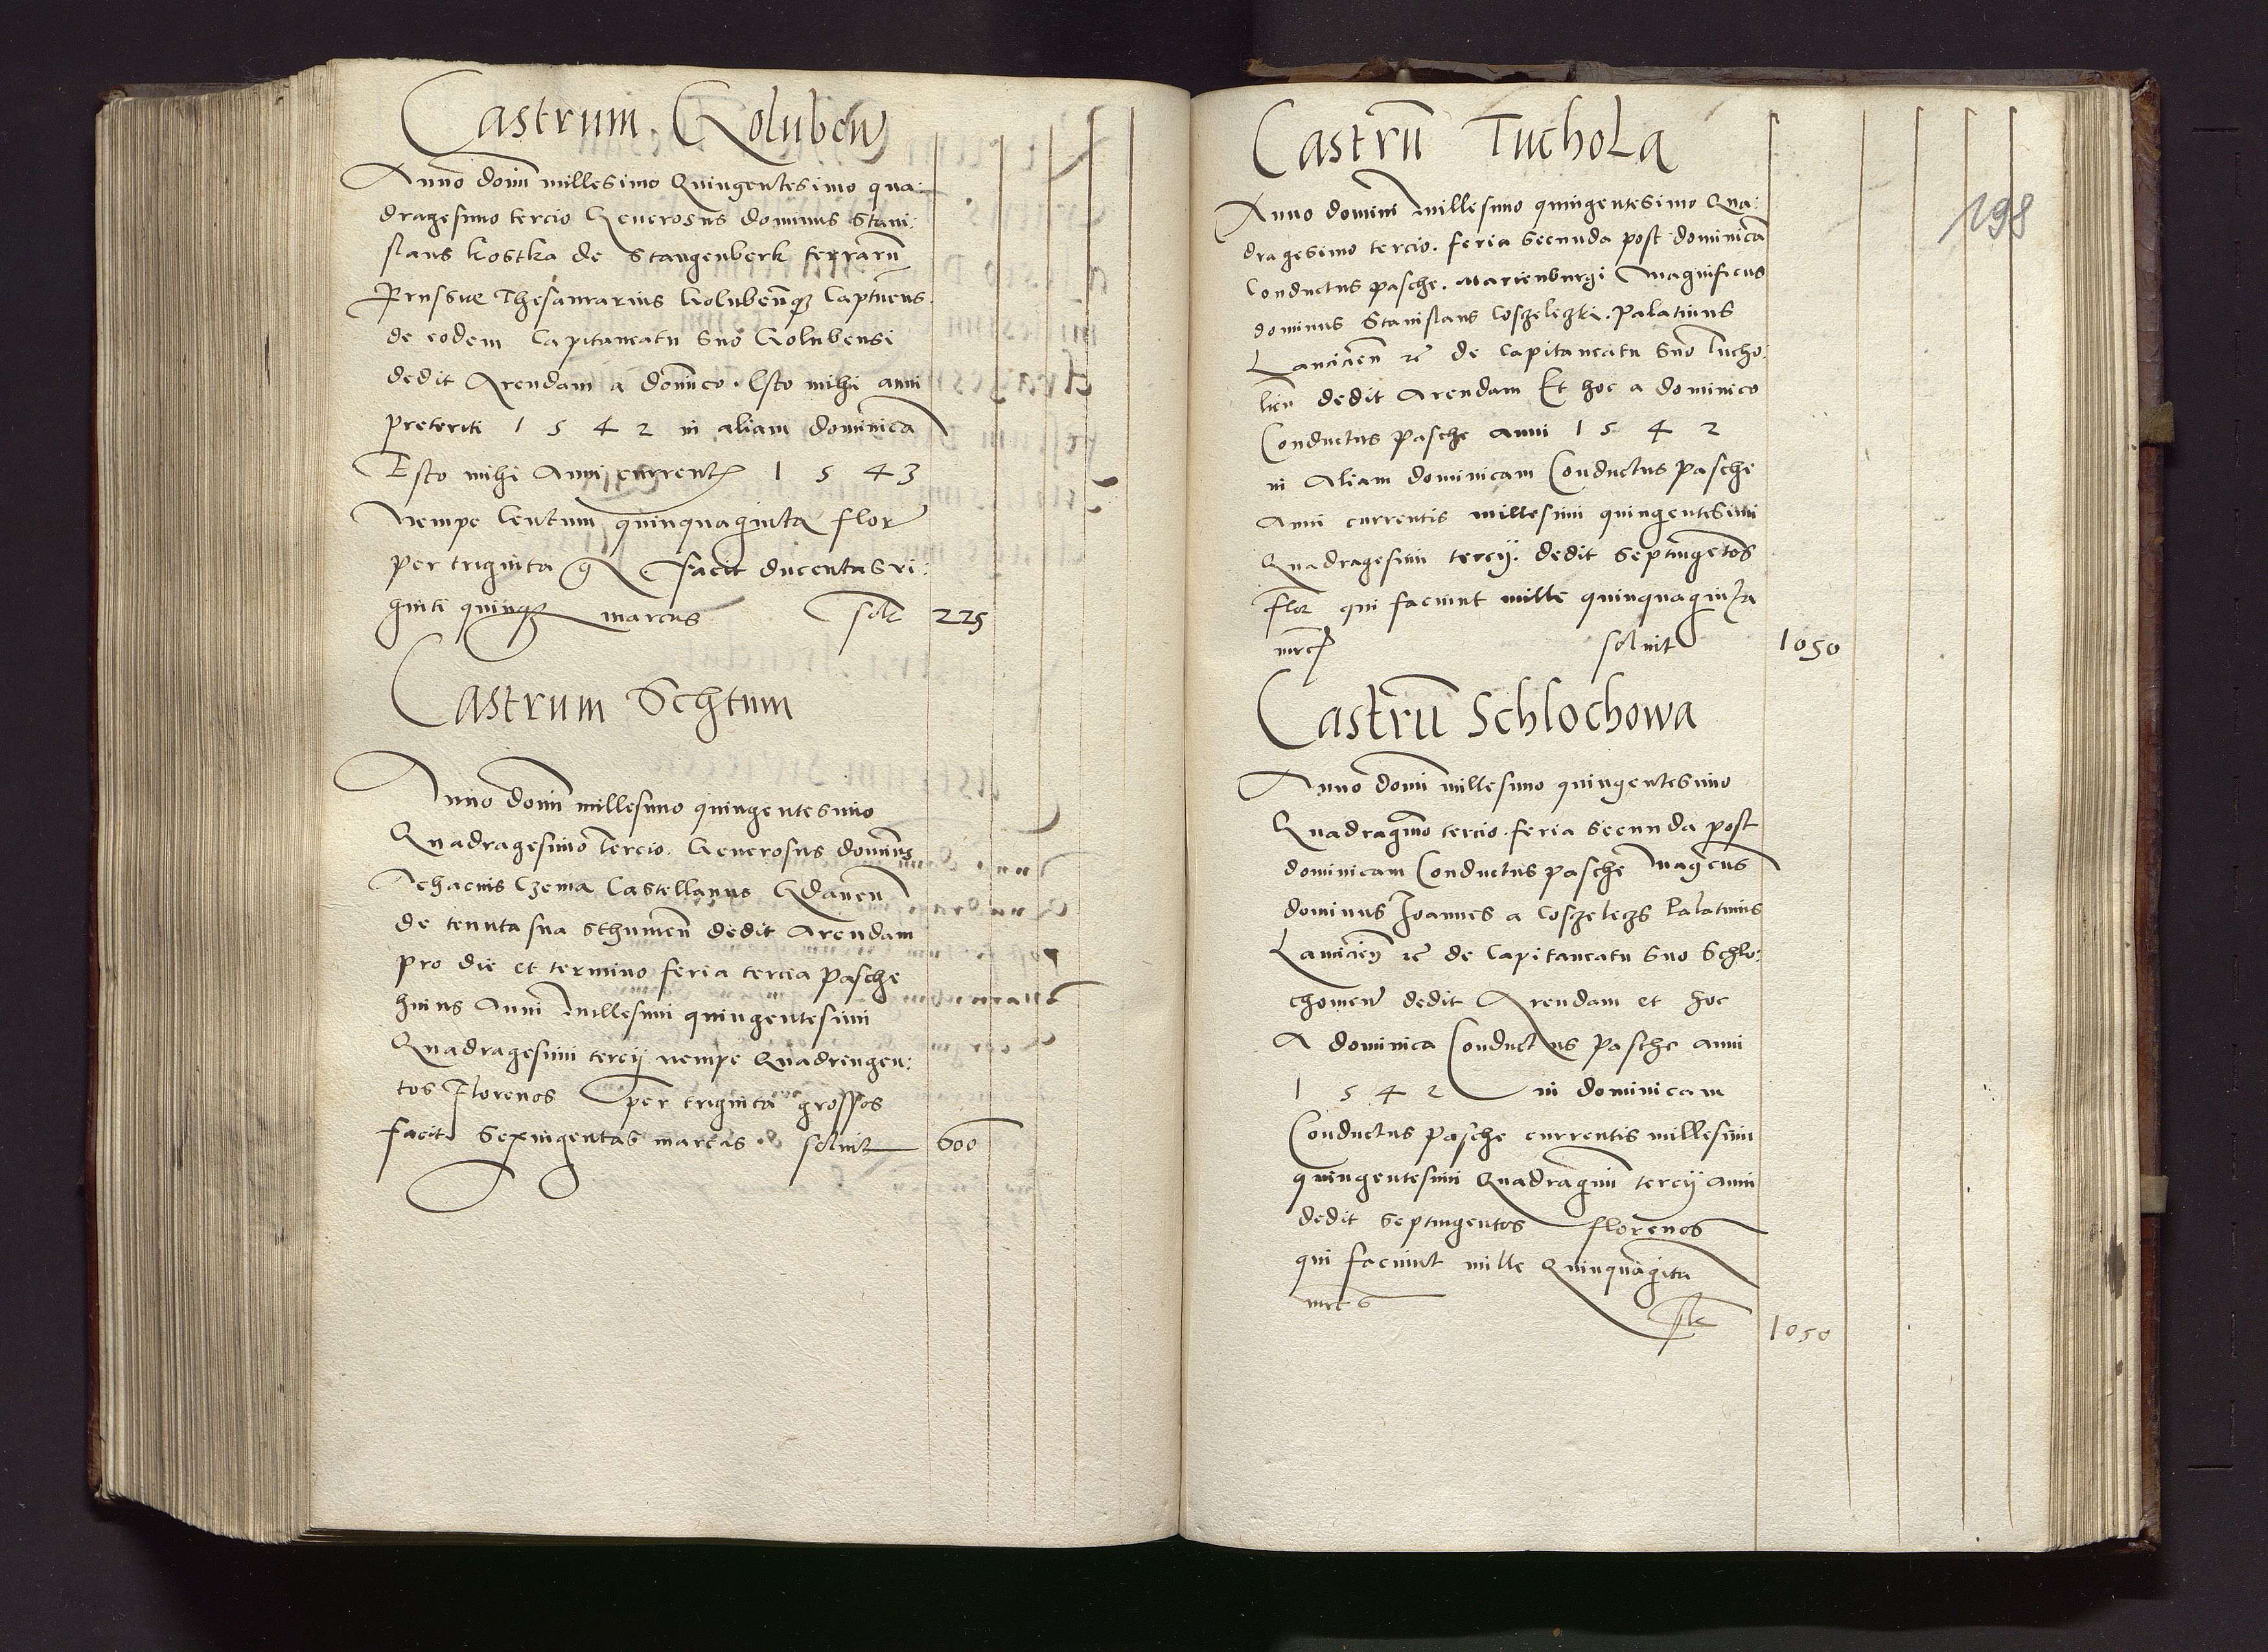 Castrum Goluben
Anno domi millesimo Quingentesimo qua:
dragesimo tercio Generosus dominus Stani:
slaus kostka de Stangenberk terrarū
Prussiae Thesaurarius Golubenq Captneus
de eodem Capitaneatu suo Golubensi
dedit Arendam a dominico Esto mihi anni
preteriti 1 5 4 2 in aliam dominica
Esto mihi Anni current 1 5 4 3
Nempe Centum quinquaginta flor
per triginta g facit ducentas vi:
ginti quinq marcas solt 225
Castrum Schtum
Anno domi millesimo quingentesimo
Quadragesimo Tercio. Generosus dominus
Achacius Czema Castellanus Gdanen
de tenuta sua Sthumen dedit Arendam
pro die et termino feria tercia pasche
huius Anni Millesimi quingentesimi
Quadragesimi tercij nempe Quadringen:
tos Florenos per triginta grossos
facit Sexingentas marcas soluit 600
198
Castrū Tuchola
Anno domini Millesimo quingentesimo Qua:
dragesimo tercio. feria secunda post dominicā
Conductus pasche. Marienburgi Magnificus
dominus Stanislaus Coszeleczki. Palatinus
Lanciciēn rē de Capitaneatu suo Tucho:
lien dedit Arendam Et hoc a dominico
Conductus Pasche anni 1 5 4 2
in Aliam dominicam Conductus pasche
Anni currentis millesimi quingentesimi
Quadragesimi tercij. dedit Septingetos
flor qui faciunt mille quinquaginta
mrc soluit 1050
Castrū Schlochowa
Anno domi millesimo quingentesimo
Quadragimo tercio. feria secunda post
dominicam Conductus pasche Magcus
dominus Joannes a Coszelecz Palatinus
Lanciciēn rē de Capitaneatu suo Schlo:
chowen dedit Arendam et hoc
A dominica Conductus Pasche anni
1 5 4 2 in dominicam
Conductus Pasche currentis millesimi
quingentesimi Quadragimi tercij anni
dedit Septingentos florenos
qui faciunt mille Quinquagita
mrcs slt 1050